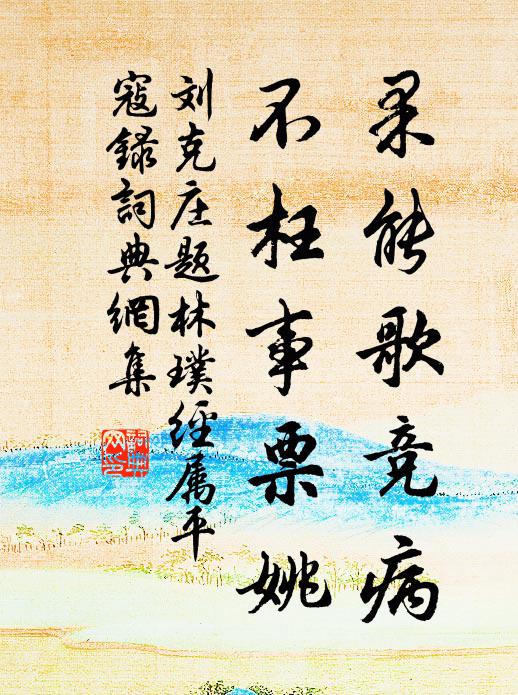 果能歌竞病
不枉事票姚
刘克庄题林璞经属平
寇録詞典網集